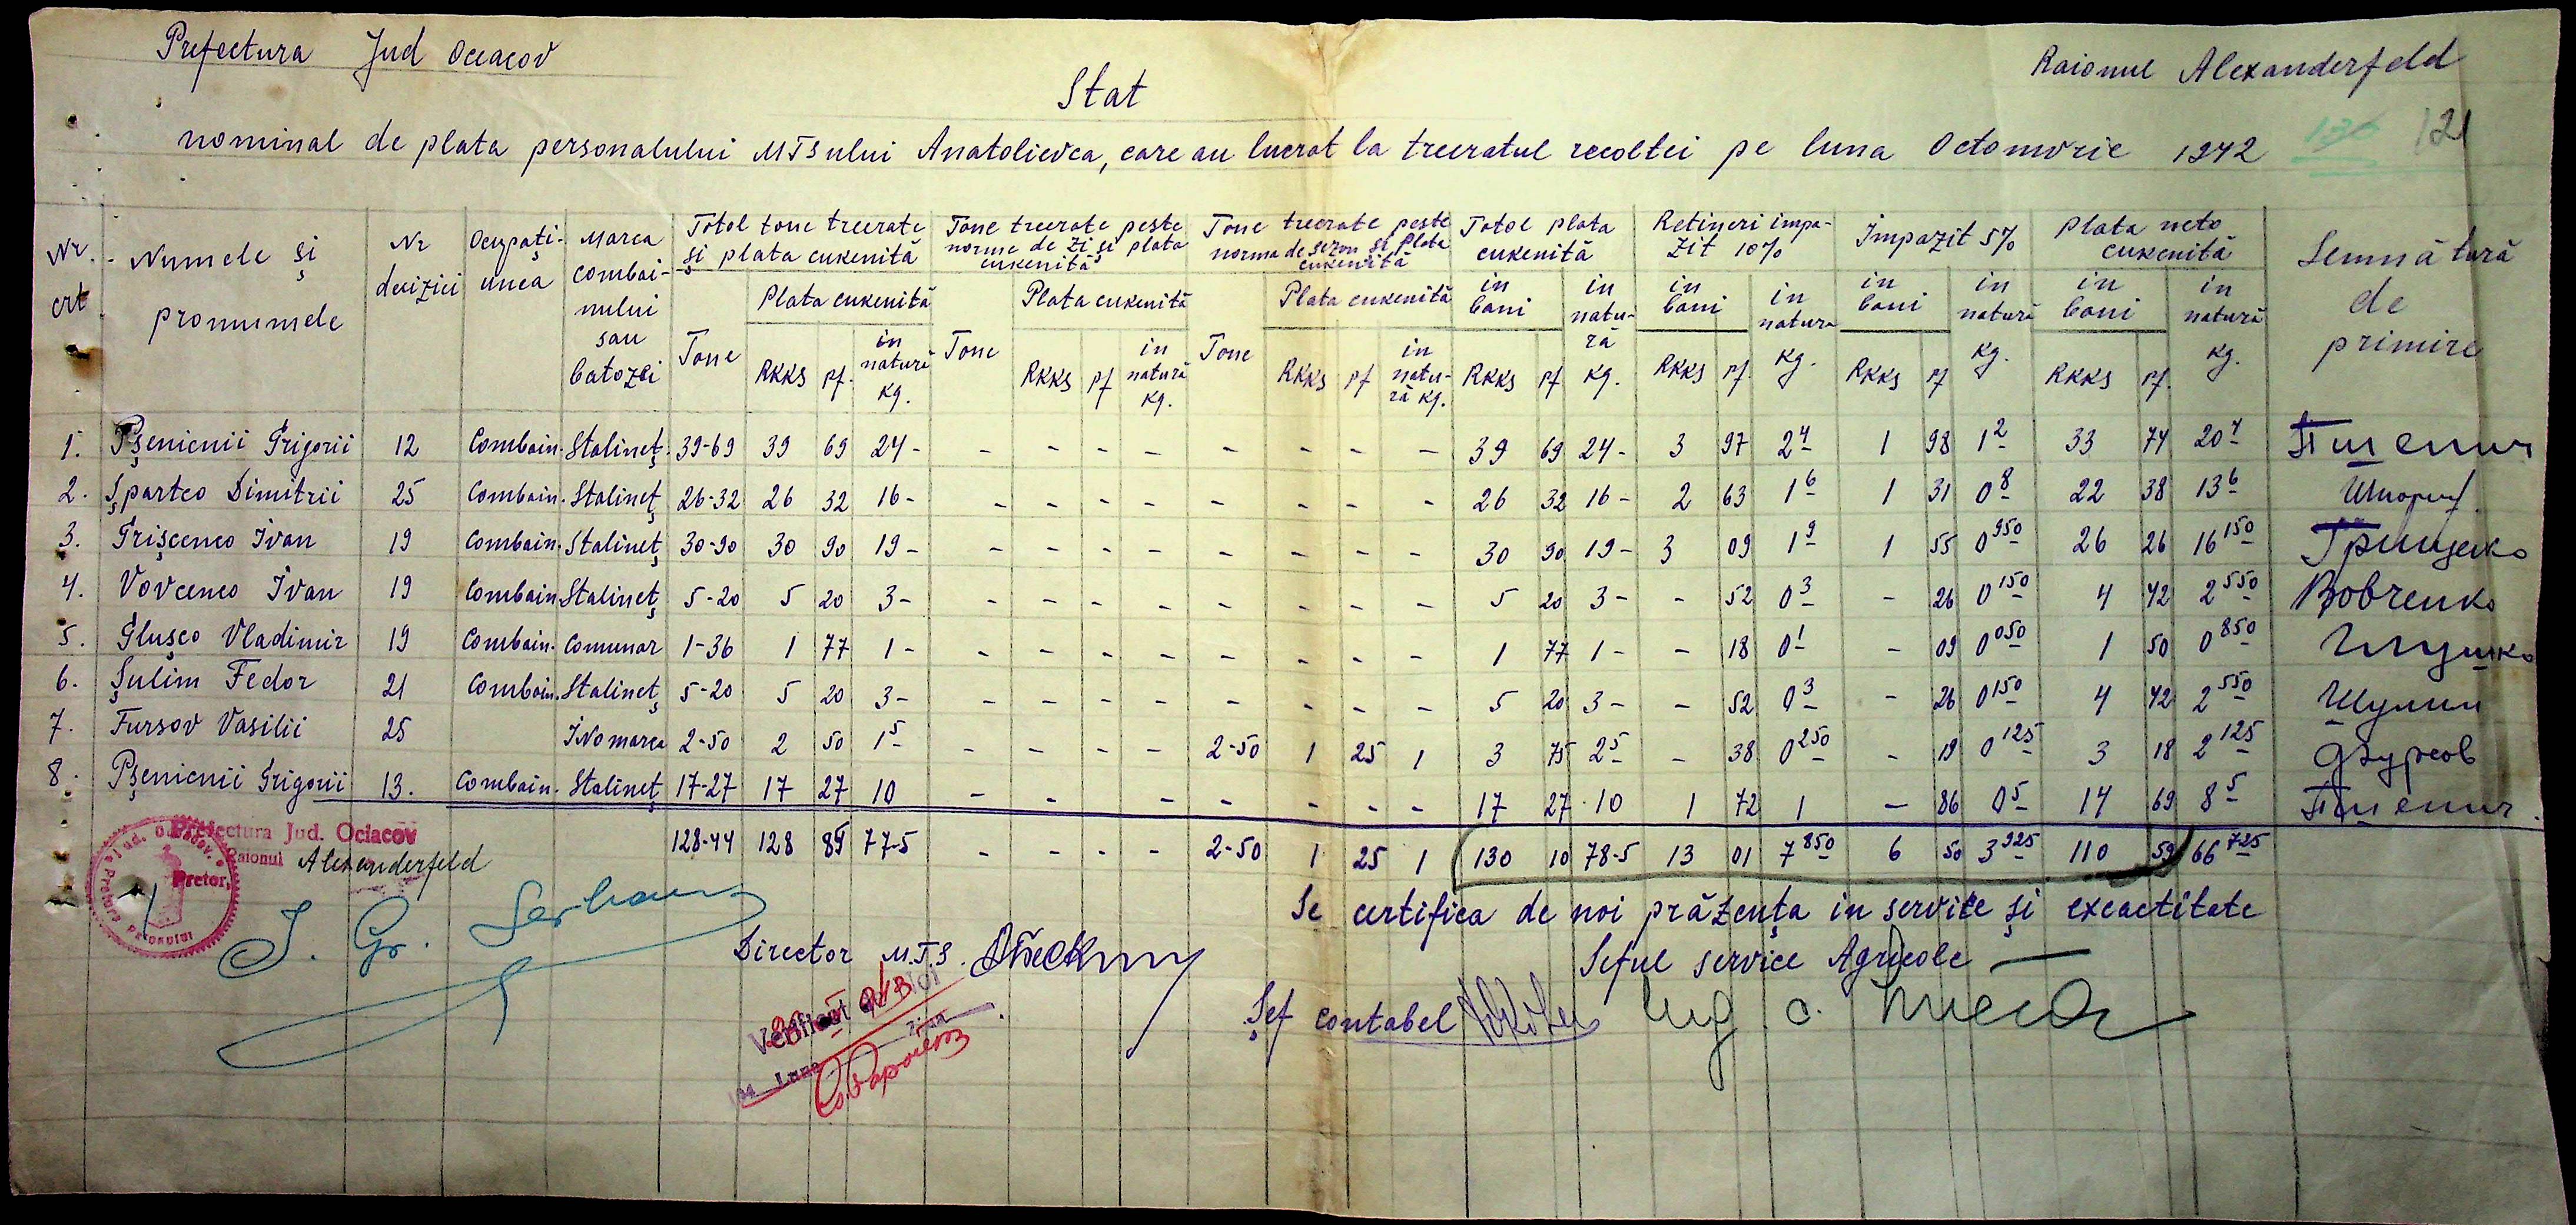 Prefectura Jud Oceacov
Raionul Alexanderfeld
Stat
121
nominal de plata personalului MTSului Anatolievca, care au lucrat la treeratul recoltei pe luna Octomvrie 1942
Nr. crt
Numele și pronumele
Nr deciziei
Ocupați-unea
Marca combai-nului sau batozei
Totol tone treerate și plata cuvenită
Tone treerate peste norme de zi și plata cuvenită
Tone treerate peste norma de sezon și plata cuvenită
Totol plata cuvenită
Retineri impo-zit 10%
Impozit 5%
Plata neto cuvenită
Semnătură de primire
Plata cuvenită Plata cuvenită Plata cuvenită in bani in natu-ră in bani in natura in bani in natură in bani in natură
Tone RKKS pf. in natură kg. Tone RKKS pf in natură kg. Tone RKKS pf in natu-ră kg. RKKS pf kg. RKKS pf. kg. RKKS pf kg. RKKS pf. kg.
1. Pșenicnii Grigorii 12 Combain. Stalineț. 39-69 39 69 24- - - - - - - - - 39 69 24- 3 97 2 4 1 98 1 2 33 74 20 4 Пшенич
2. Șparteo Dimitrii 25 Combain. Stalineț 26-32 26 32 16- - - - - - - - - 26 32 16- 2 63 1 6 1 31 0 8 22 38 13 6
3. Grișcenco Ivan 19 Combain. Stalineț 30-90 30 90 19- - - - - - - - - 30 90 19- 3 09 1 9 1 55 0 950 26 26 16 150 Грищенко
4. Vovcenco Ivan 19 Combain Stalineț 5-20 5 20 3- - - - - - - - - 5 20 3- - 52 0 3 - 26 0 150 4 42 2 550 Вовченко
5. Glușco Vladimir 19 Combain. Comunar 1-36 1 77 1- - - - - - - - - 1 77 1- - 18 0 1 - 09 0 050 1 50 0 850 Глушко
6. Șulim Fedor 21 Combain. Stalineț 5-20 5 20 3- - - - - - - - - 5 20 3- - 52 0 3 - 26 0 150 4 42 2 550 Шулим
7. Fursov Vasilii 25 2-50 2 50 1 5 - - - - 2-50 1 25 1 3 75 2 5 - 38 0 250 - 19 0 125 3 18 2 125 Фурсов
8. Pșenicnii Grigorii 13. Combain. Stalineț 17-27 17 27 10 - - - - - - - 17 27 10 1 72 1 - 86 0 5 14 69 8 5 Пшенич.
128-44 128 85 77-5 - - - - 2-50 1 25 1 130 10 78-5 13 01 7 850 6 50 3 925 110 59 66 725
Prefectura Jud. Ociacov
Raionul Alexanderfeld
Pretor,
Se certifica de noi prăzența in servite și exeactitate
Director M.T.S.
Seful service Agricole
Șef contabel
Verificat
Luna